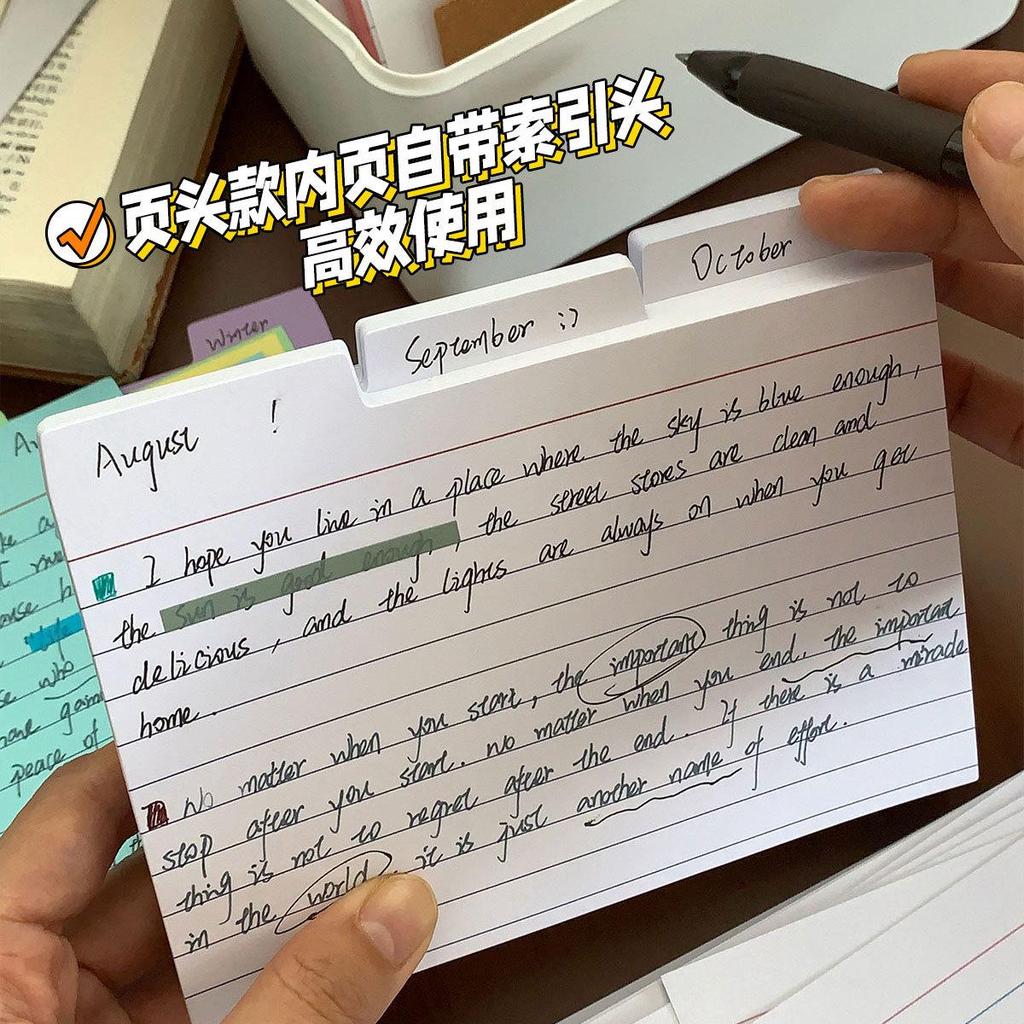 页头款内页自带索引头
高效使用
October
September :)
Winter
August !
I hope you live in a place where the sky is blue enough,
the sun is good enough, the street stores are clean and
delicious, and the lights are always on when you get
home.
No matter when you start, the important thing is not to
stop after you start. no matter when you end. the important
thing is not to regret after the end. If there is a miracle
in the world, it is just another name of effort.
ke a
se who
game
peace of